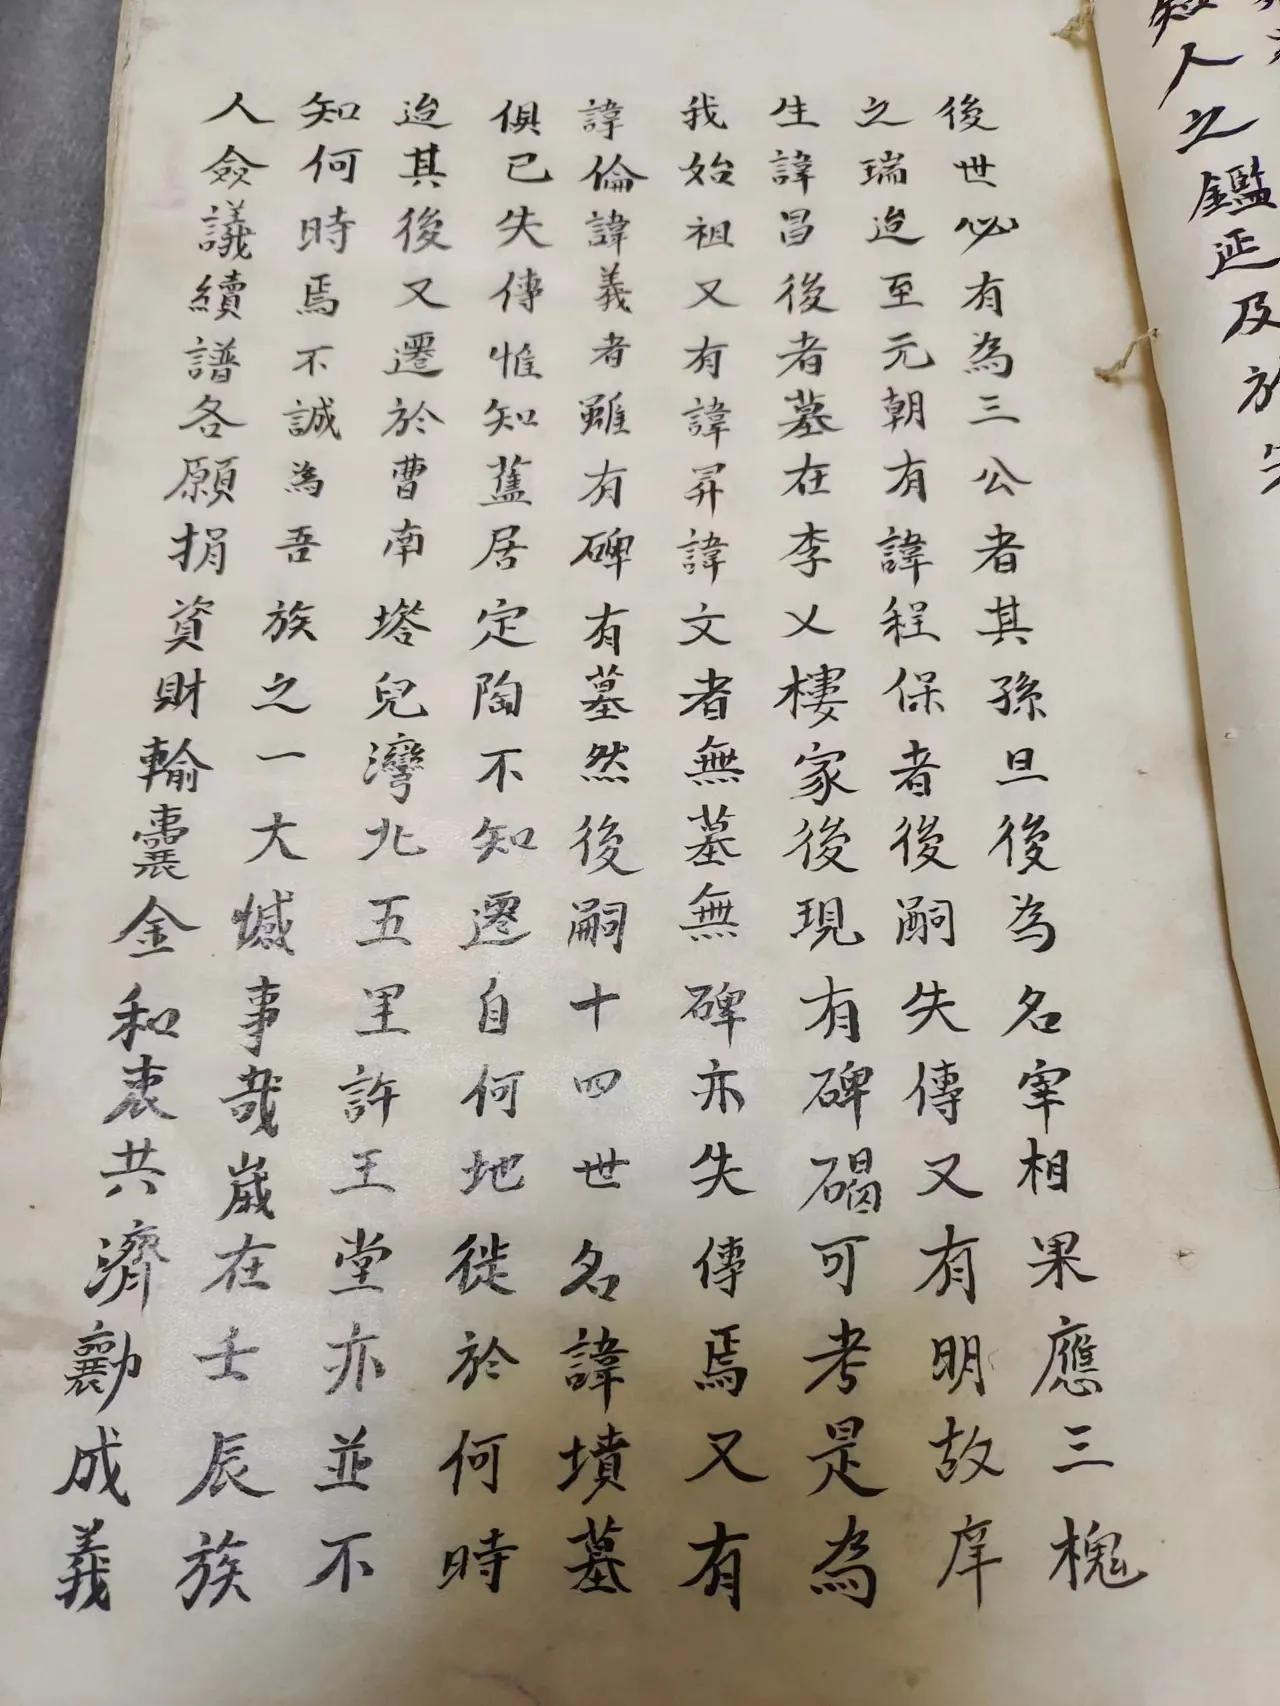 知人之鑑延及於
後世必有為三公者其孫旦後為名宰相果應三槐
之瑞迨至元朝有諱程保者後嗣失傳又有明故庠
生諱昌後者墓在李乂樓家後現有碑碣可考是為
我始祖又有諱昇諱文者無墓無碑亦失傳焉又有
諱倫諱義者雖有碑有墓然後嗣十四世名諱墳墓
俱已失傳惟知舊居定陶不知遷自何地徙於何時
迨其後又遷於曹南塔兒灣北五里許王堂亦並不
知何時焉不誠為吾族之一大憾事哉歲在壬辰族
人僉議續譜各願捐資財輸囊金和衷共濟勷成義